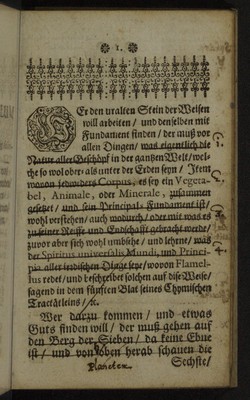 1.
Er den uralten Stein der Weisen
will arbeiten / und denselben mit
Fundament finden / der muß vor
allen Dingen / was eigentlich die
Natur aller Geschöpf in der gantzen Welt / wel-
che so wol ober- als unter der Erden seyn / Item
wovon jedweders Corpus, es sey ein Vegeta-
bel, Animale, oder Minerale, zusammen
gesetzet / und sein Principal-Fundament ist /
wohl verstehen / auch wodurch / oder mit was es
zu seiner Reiffe und Endschafft gebracht werde /
zuvor aber sich wohl umbsehe / und lehrne / was
der Spiritus universalis Mundi, und Princi-
pia aller irrdischen Dinge seye / wovon Flamel-
lus redet / und beschreibet solchen auf dise Weise /
sagend in dem fünfften Blat seines Chymischen
Tractätleins / &c.
Wer darzu kommen / und etwas
Guts finden will / der muß gehen auf
den Berg der Sieben / da keine Ebne
ist / und von oben herab schauen die
Planeten.
Sechste /